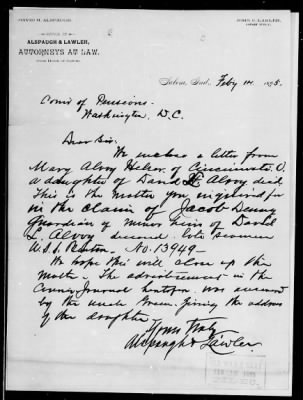 DAVID H. ALSPAUGH
JOHN C. LAWLER,
OFFICE OF
ALSPAUGH & LAWLER,
ATTORNEYS AT LAW.
Salem, Ind., Feby 14 1895.
Comr of Pensions.
Washington, D.C.
Dear Sir:
We enclose a letter from
Mary Alvoy of Cincinnati, O.
a daughter of David Alvoy decd.
This is the matter you inquired for
in the claim of Jacob Denny
Guardian of minor heirs of David
L Alvoy deceased late seaman
U.S.S. No. 13949-
We hope this will close up the
matter. The advertisement in the
Journal was answered
by the uncle Giving the address
of the daughter.
Yours Truly
Alspaugh & Lawler.